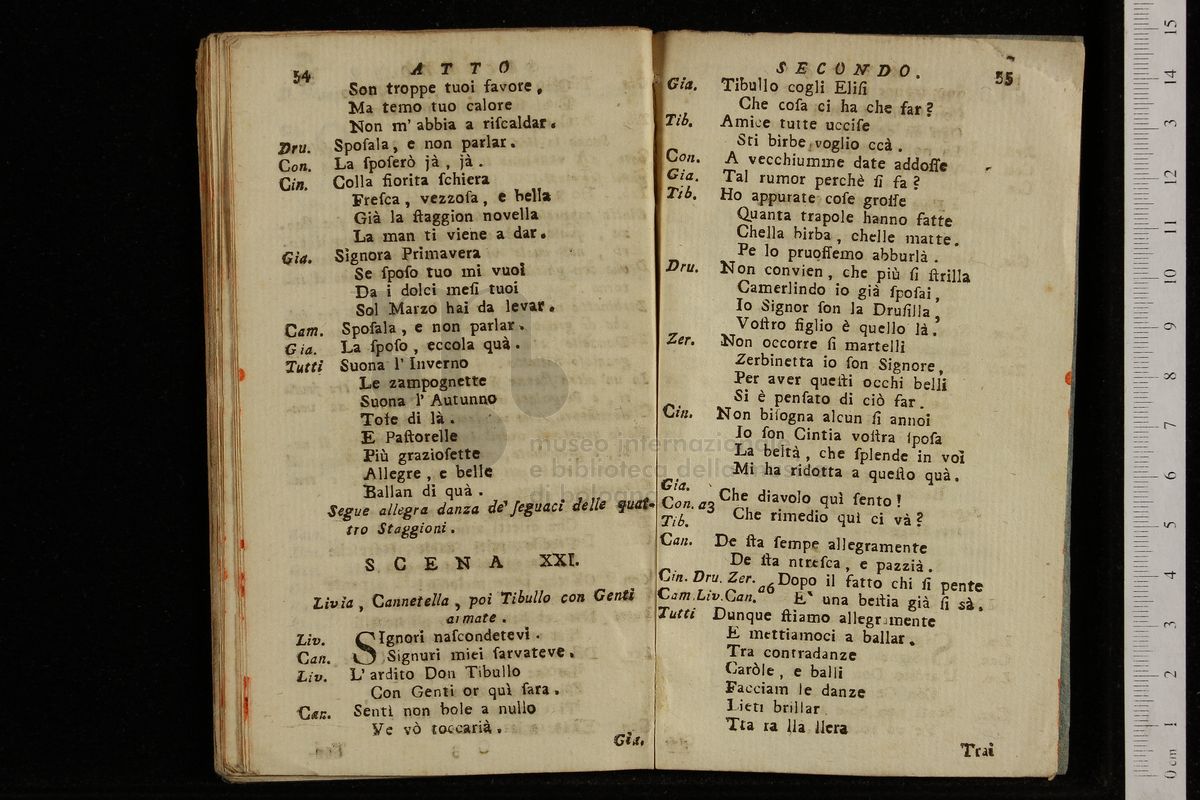 54
A T T O
Son troppe tuoi favore,
Ma temo tuo calore
Non m' abbia a riſcaldar.
Dru. Spoſala, e non parlar.
Con. La ſpoſerò jà, jà.
Cin. Colla fiorita ſchiera
Freſca, vezzoſa, e bella
Già la ſtaggion novella
La man ti viene a dar.
Gia. Signora Primavera
Se ſpoſo tuo mi vuoi
Da i dolci meſi tuoi
Sol Marzo hai da levar.
Cam. Spoſala, e non parlar.
Gia. La ſpoſo, eccola quà.
Tutti Suona l' Inverno
Le zampognette
Suona l' Autunno
Toſe di là.
E Paſtorelle
Più grazioſette
Allegre, e belle
Ballan di quà.
Segue allegra danza de' ſeguaci delle quat-
tro Staggioni.
S C E N A XXI.
Livia, Cannetella, poi Tibullo con Genti
armate.
Liv. SIgnori naſcondetevi.
Can. Signuri miei ſarvateve.
Liv. L' ardito Don Tibullo
Con Genti or quì ſara.
Can. Sentì non bole a nullo
Ve vò toccarià.
Gia.
S E C O N D O.
55
Gia. Tibullo cogli Eliſi
Che coſa ci ha che far?
Tib. Amice tutte ucciſe
Sti birbe voglio ccà.
Con. A vecchiumme date addoſſe
Gia. Tal rumor perchè ſi fa?
Tib. Ho appurate coſe groſſe
Quanta trapole hanno fatte
Chella birba, chelle matte.
Pe lo pruoſſemo abburlà.
Dru. Non convien, che più ſi ſtrilla
Camerlindo io già ſpoſai,
Io Signor ſon la Druſilla,
Voſtro figlio è quello là.
Zer. Non occorre ſi martelli
Zerbinetta io ſon Signore,
Per aver queſti occhi belli
Si è penſato di ciò far.
Cin. Non biſogna alcun ſi annoi
Io ſon Cintia voſtra ſpoſa
La beltà, che ſplende in voi
Mi ha ridotta a queſto quà.
Gia.
Con. a3 Che diavolo quì ſento!
Tib. Che rimedio quì ci và?
Can. De ſta ſempe allegramente
De ſta ntreſca, e pazzià.
Cin. Dru. Zer. a6 Dopo il fatto chi ſi pente
Cam. Liv. Can. E' una beſtia già ſi sà.
Tutti Dunque ſtiamo allegramente
E mettiamoci a ballar.
Tra contradanze
Caròle, e balli
Facciam le danze
Lieti brillar
Tta ra lla llera
Trai
museo internazionale
e biblioteca della musica
di bologna
0 cm 1 2 3 4 5 6 7 8 9 10 11 12 13 14 15